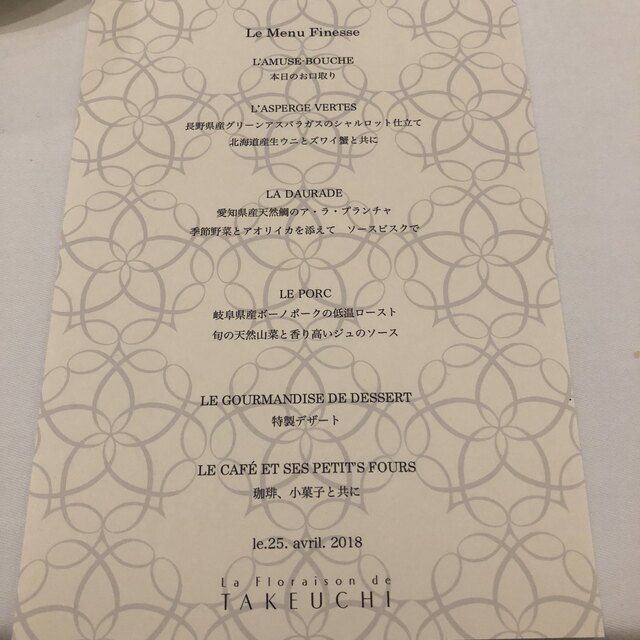 Le Menu Finesse
L'AMUSE-BOUCHE
本日のお口取り
L'ASPERGE VERTES
長野県産グリーンアスパラガスのシャルロット仕立て
北海道産生ウニとズワイ蟹と共に
LA DAURADE
愛知県産天然鯛のア・ラ・プランチャ
季節野菜とアオリイカを添えて　ソースビスクで
LE PORC
岐阜県産ボーノポークの低温ロースト
旬の天然山菜と香り高いジュのソース
LE GOURMANDISE DE DESSERT
特製デザート
LE CAFÉ ET SES PETIT'S FOURS
珈琲、小菓子と共に
le.25. avril. 2018
La Floraison de
TAKEUCHI